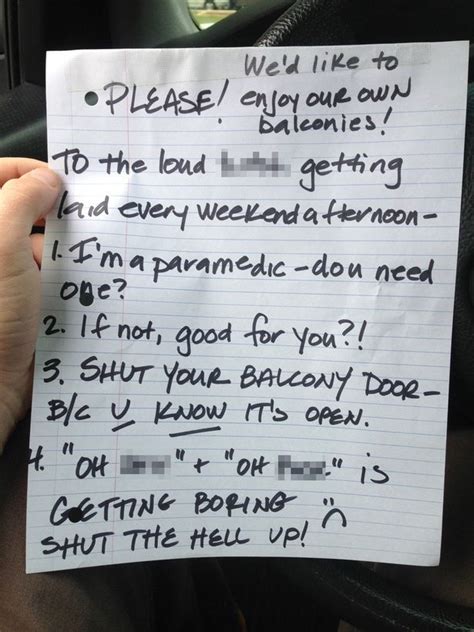 We'd like to
• PLEASE! enjoy our own
balconies!
To the loud getting
laid every weekend afternoon-
1. I'm a paramedic - do u need
one?
2. If not, good for you?!
3. SHUT YOUR BALCONY DOOR-
B/C U KNOW IT'S OPEN.
4. "OH " + "OH ." is
GETTING BORING
SHUT THE HELL UP!